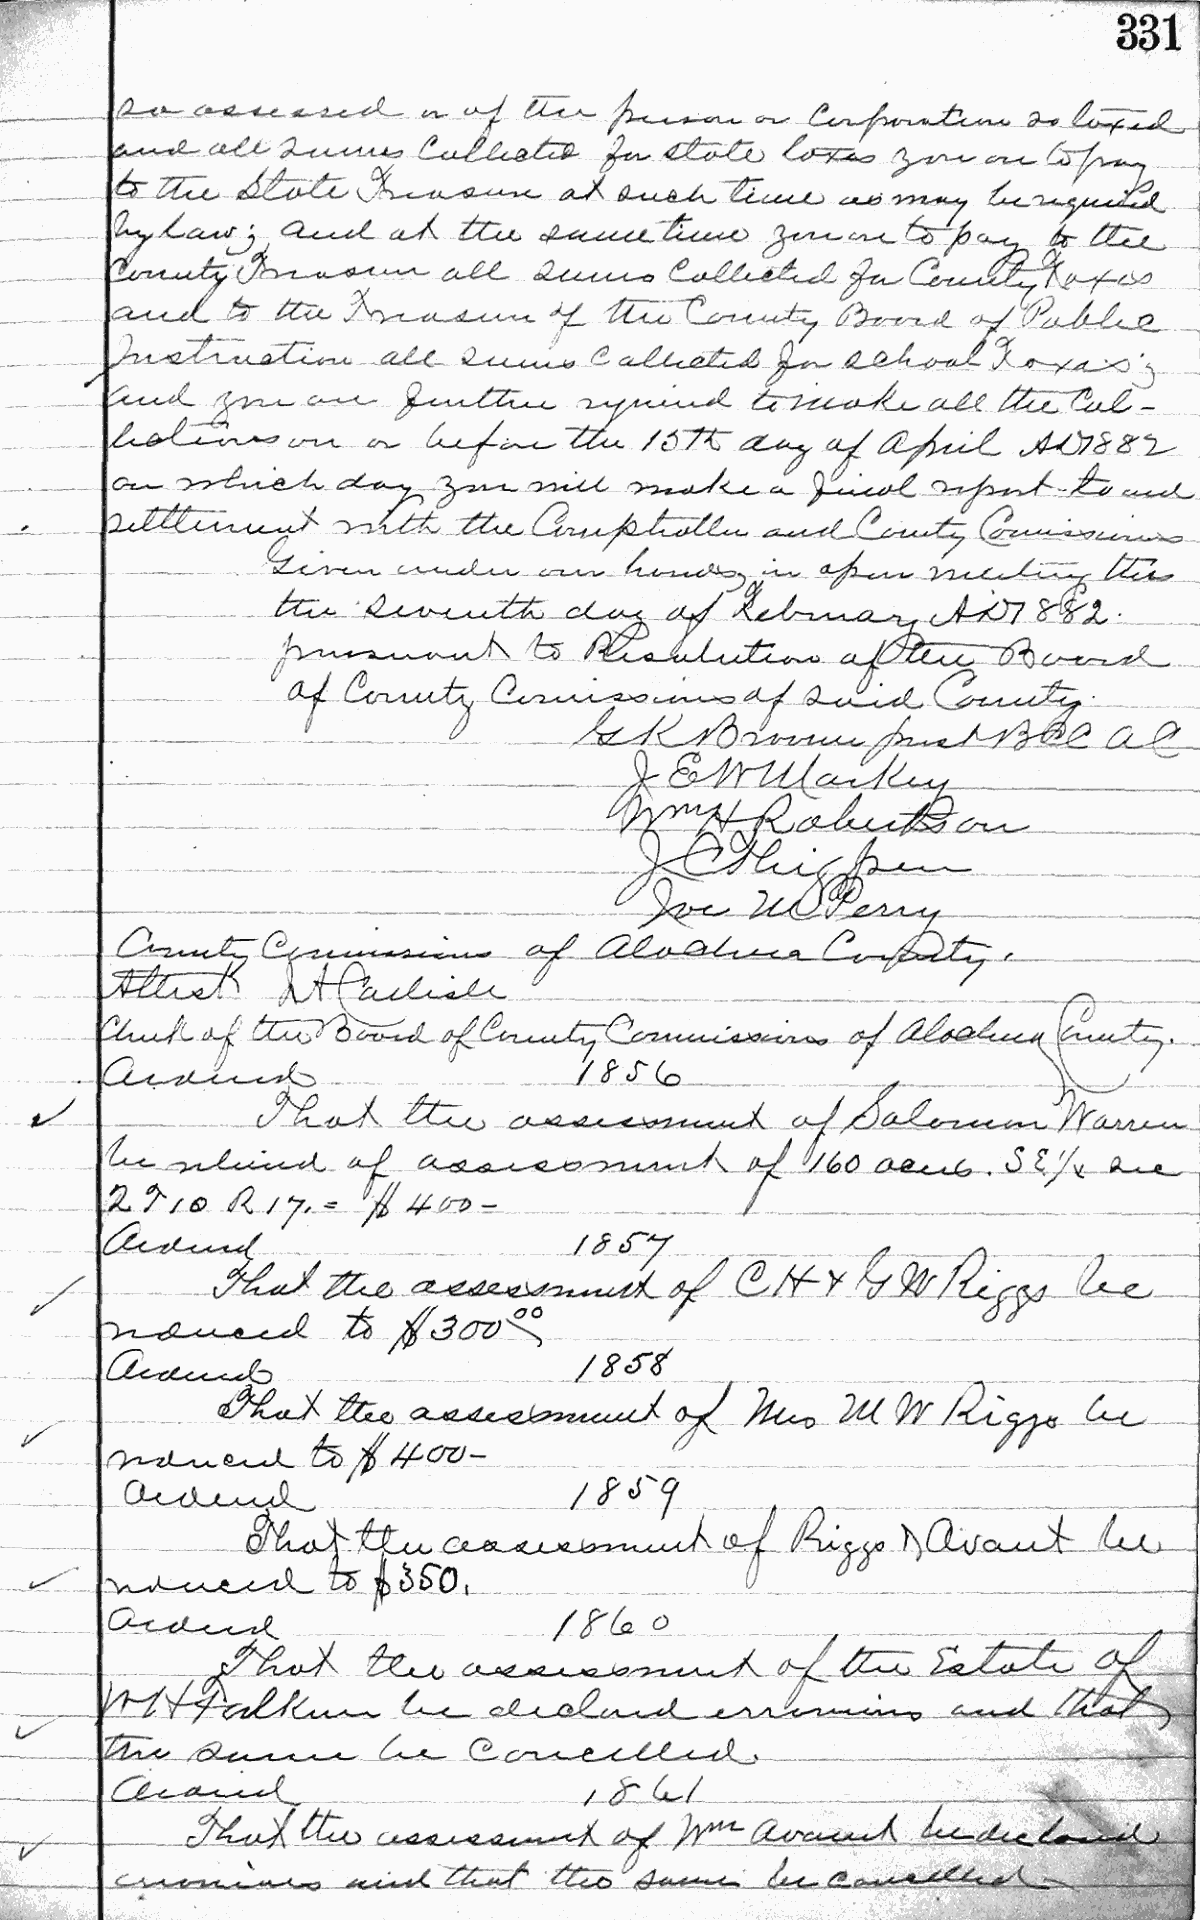 331
so assessed or of the person or Corporation so taxed
and all sums Collected for state taxes you are to pay
to the State Treasurer at such time as may be required
by law; and at the same time you are to pay to the
County Treasurer all sums Collected for County Taxes
and to the Treasurer of the County Board of Public
Instruction all sums Collected for school Taxes;
and you are further required to make all the Col-
lections on or before the 15th day of April AD1882
on which day you will make a final report to and
settlement with the Comptroller and County Comissioners
Given under our hands, in open meeting this
the seventh day of February AD1882.
pursuant to Resolution of the Board
of County Comissioners of said County.
G K Broome prest BCC AC
J E W Markey
Wm H Robertson
J C Thigpen
Joe M Perry
County Comissioners of Alachua County.
Attest J A Carlisle
Clerk of the Board of County Commissioners of Alachua County.
Ordered 1856
That the assessment of Solomon Warren
be relieved of assessment of 160 acres. SE 1/4 sec
2 T 10 R 17. = $400-
Ordered 1857
That the assessment of C H & G W Riggs be
reduced to $300 00
Ordered 1858
That the assessment of Mrs M W Riggs be
reduced to $400-
Ordered 1859
That the assessment of Riggs & Avant be
reduced to $350.
Ordered 1860
That the assessment of the Estate of
W H be declared erronious and that
the same be Concelled.
Ordered 1861
That the assessment of Wm Avant be declared
erronious and that the same be cancelled